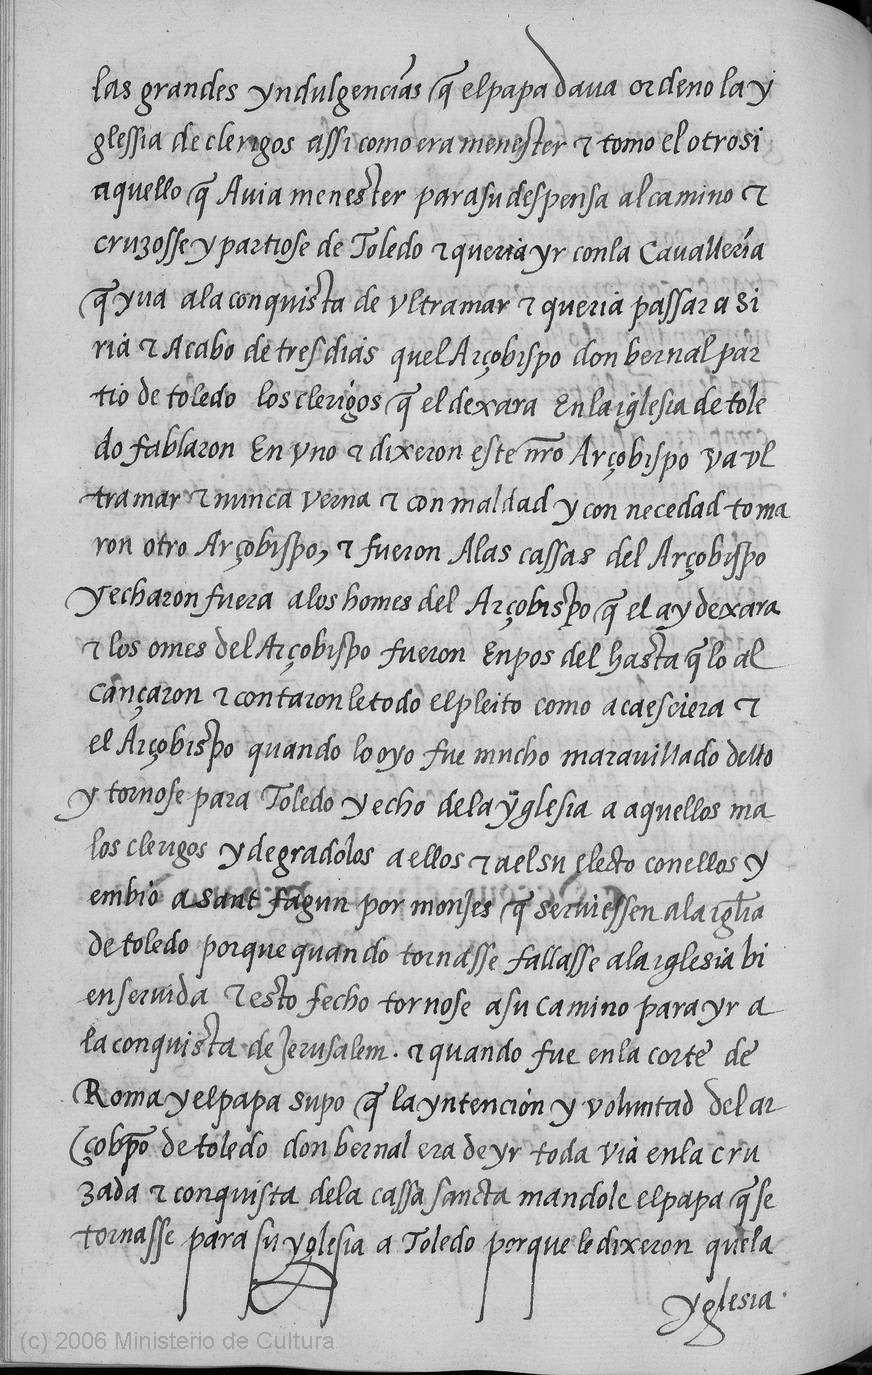 las grandes yndulgencias q̄ el papa dava ordeno la y
glessia de clerigos assi como era menester & tomo el otrosi
aquello q̄ Avia menester para su despensa al camino &
cruzosse y partiose de Toledo & queria yr con la Cavalleria
q̄ yva a la conquista de ultramar & queria passar a Si
ria & Acabo de tres dias quel Arçobispo don bernal par
tio de toledo los clerigos q̄ el dexara En la iglesia de tole
do fablaron En uno & dixeron este nr̄o Arçobispo va ul
tramar & nunca verna & con maldad y con necedad toma
ron otro Arçobispo, & fueron Alas cassas del Arçobispo
y echaron fuera a los homes del Arçobispo q̄ el ay dexara
& los omes del Arçobispo fueron Enpos del hasta q̄ lo al
cançaron & contaron le todo el pleito como acaesciera &
el Arçobispo quando lo oyo fue mucho maravillado dello
y tornose para Toledo y echo de la ÿglesia a aquellos ma
los clerigos y degradolos a ellos & a el su electo con ellos y
embio a sant fagun por monjes q̄ serviessen a la igl̄ia
de toledo porque quando tornasse fallasse a la iglesia bi
en servida & esto fecho tornose a su camino para yr a
la conquista de Jerusalem. & quando fue en la corte de
Roma y el papa supo q̄ la yntención y voluntad del ar
çobp̄o de toledo don bernal era de yr toda via en la cru
zada & conquista de la cassa sancta mandole el papa q̄ se
tornasse para su yglesia a Toledo porque le dixeron que la
yglesia.
(c) 2006 Ministerio de Cultura